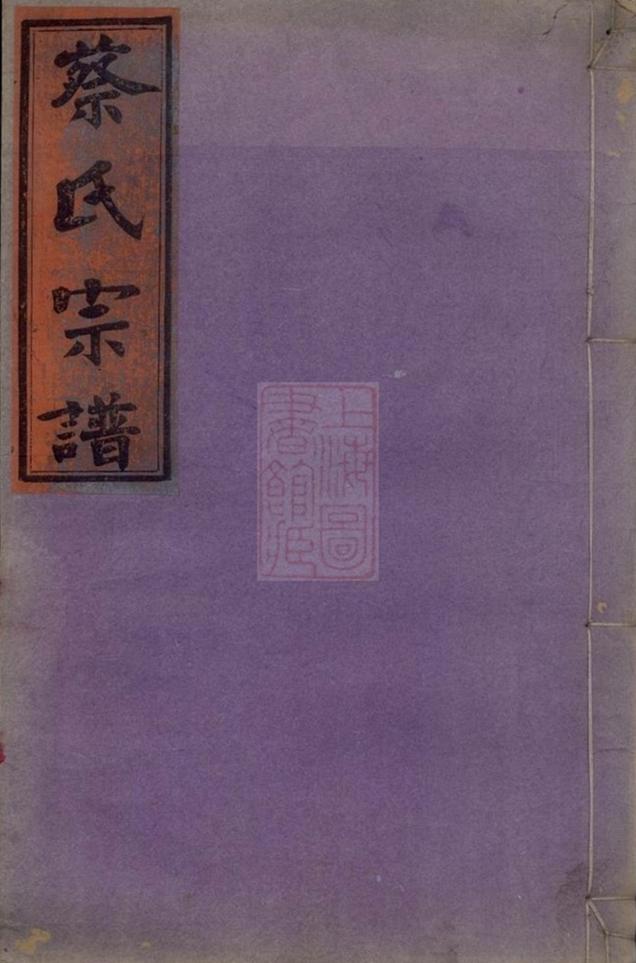 蔡氏宗譜
上海圖
書館藏